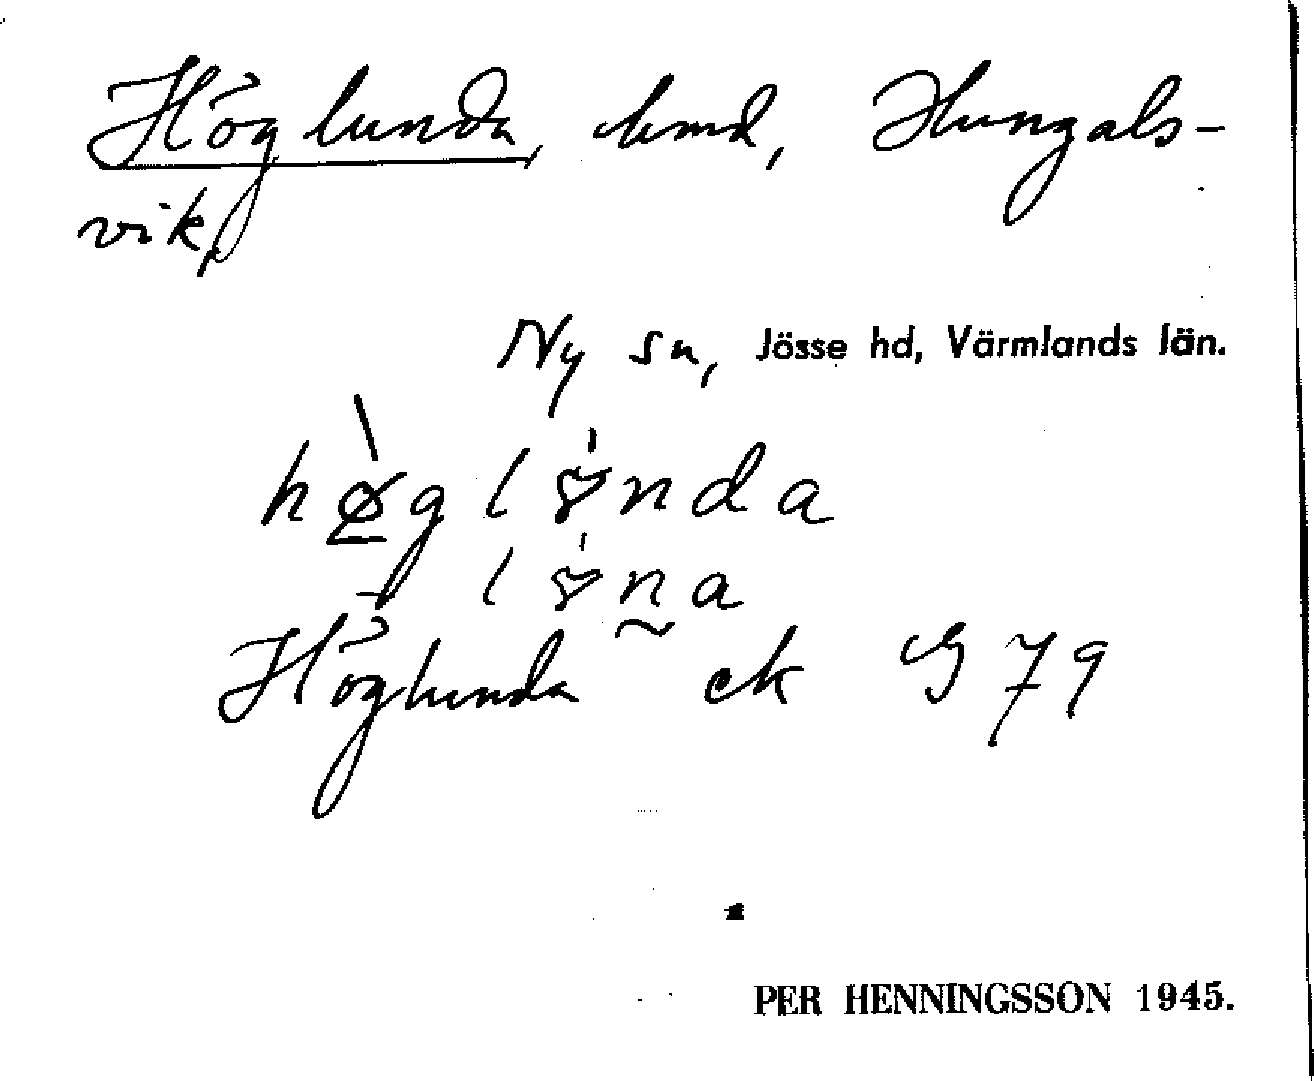 Höglunda, hmd, Hungals-
vik,
Ny sn, Jösse hd, Värmlands län.
høglənda
- ləna
Höglunda ek G 79
PER HENNINGSSON 1945.